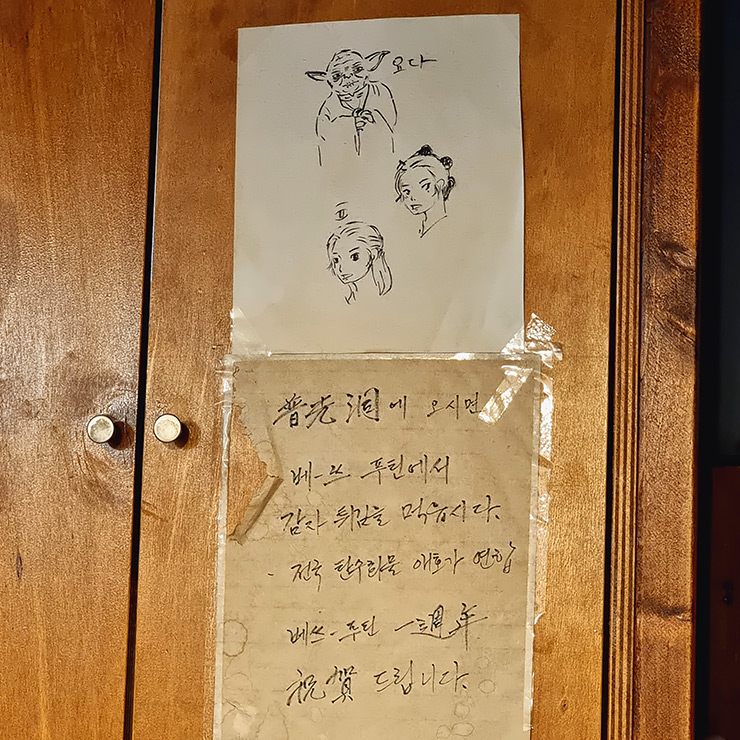 요다
普光洞에 오시면
베-쓰 푸틴에서
감자 튀김을 먹읍시다.
- 전국 탄수화물 애호가 연합
베쓰-푸틴 一週年
祝賀 드립니다.